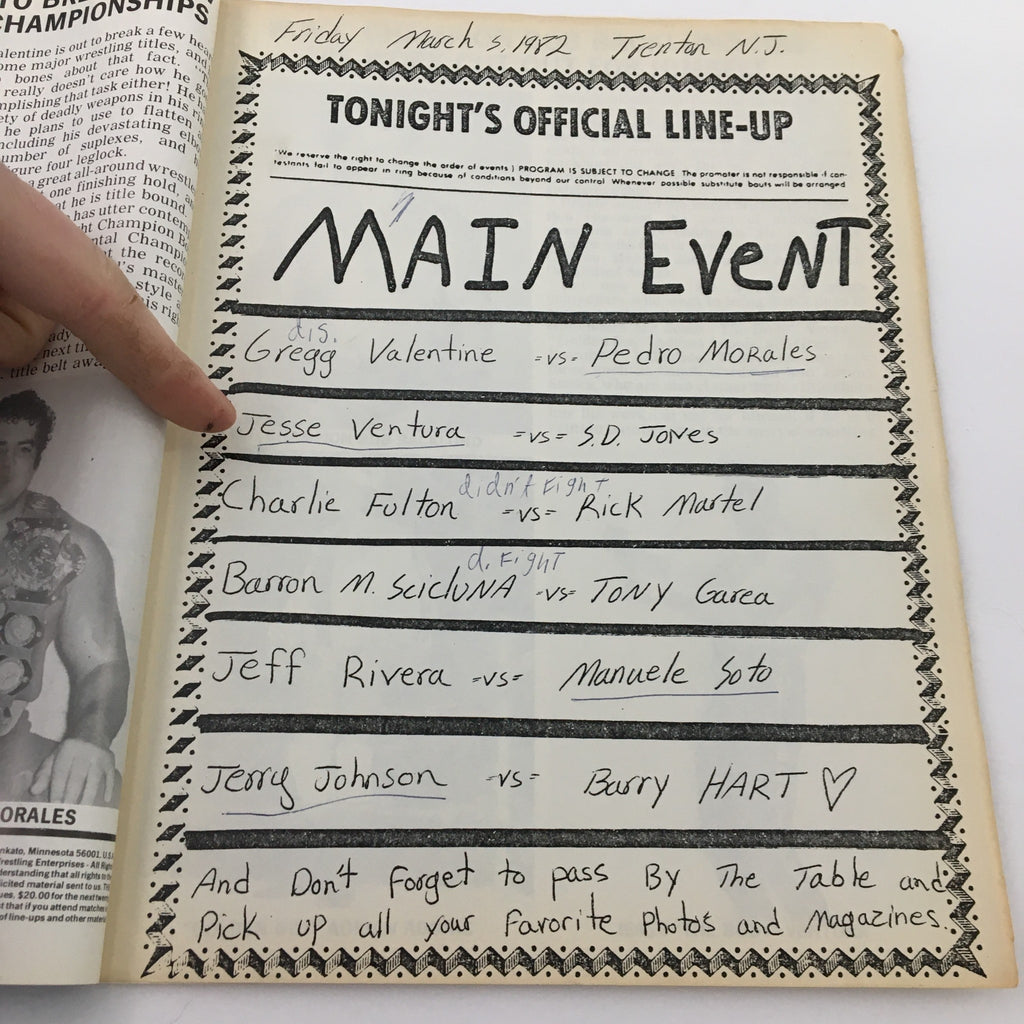 CHAMPIONSHIPS
alentine is out to break a few
ome major wrestling titles, and
bones about that fact.
really doesn't care how he
mplishing that task either! He
ety of deadly weapons in his
he plans to use to flatten
ncluding his devastating
umber of suplexes, and
gure four leglock.
a great all-around
one finishing hold,
at he is title bound
has utter
ht Champion
ntal
t the
's
style
next
title belt
ORALES
nkato, Minnesota 56001, U.S.
restling Enterprises - All
derstanding that all rights to
icited material sent to us.
ues, $20.00 for the next
t that if you attend matches
of line-ups and other
Friday March 5, 1982 Trenton N.J.
TONIGHT'S OFFICIAL LINE-UP
*We reserve the right to change the order of events) PROGRAM IS SUBJECT TO CHANGE The promoter is not responsible if con-
testants fail to appear in ring because of conditions beyond our control Whenever possible substitute bouts will be arranged
MAIN EVeNT
dis.
Gregg Valentine =vs= Pedro MoRales
Jesse Ventura =vs= S.D. Jones
didn't Fight
Charlie Fulton =vs= Rick Martel
d. Fight
Barron M. ScicluNA -vs- Tony Garea
Jeff Rivera =vs= Manuele Soto
Jerry Johnson =vs= Barry HART ♡
And Don't Forget to pass By The Table and
Pick up all your Favorite Photo's and Magazines.